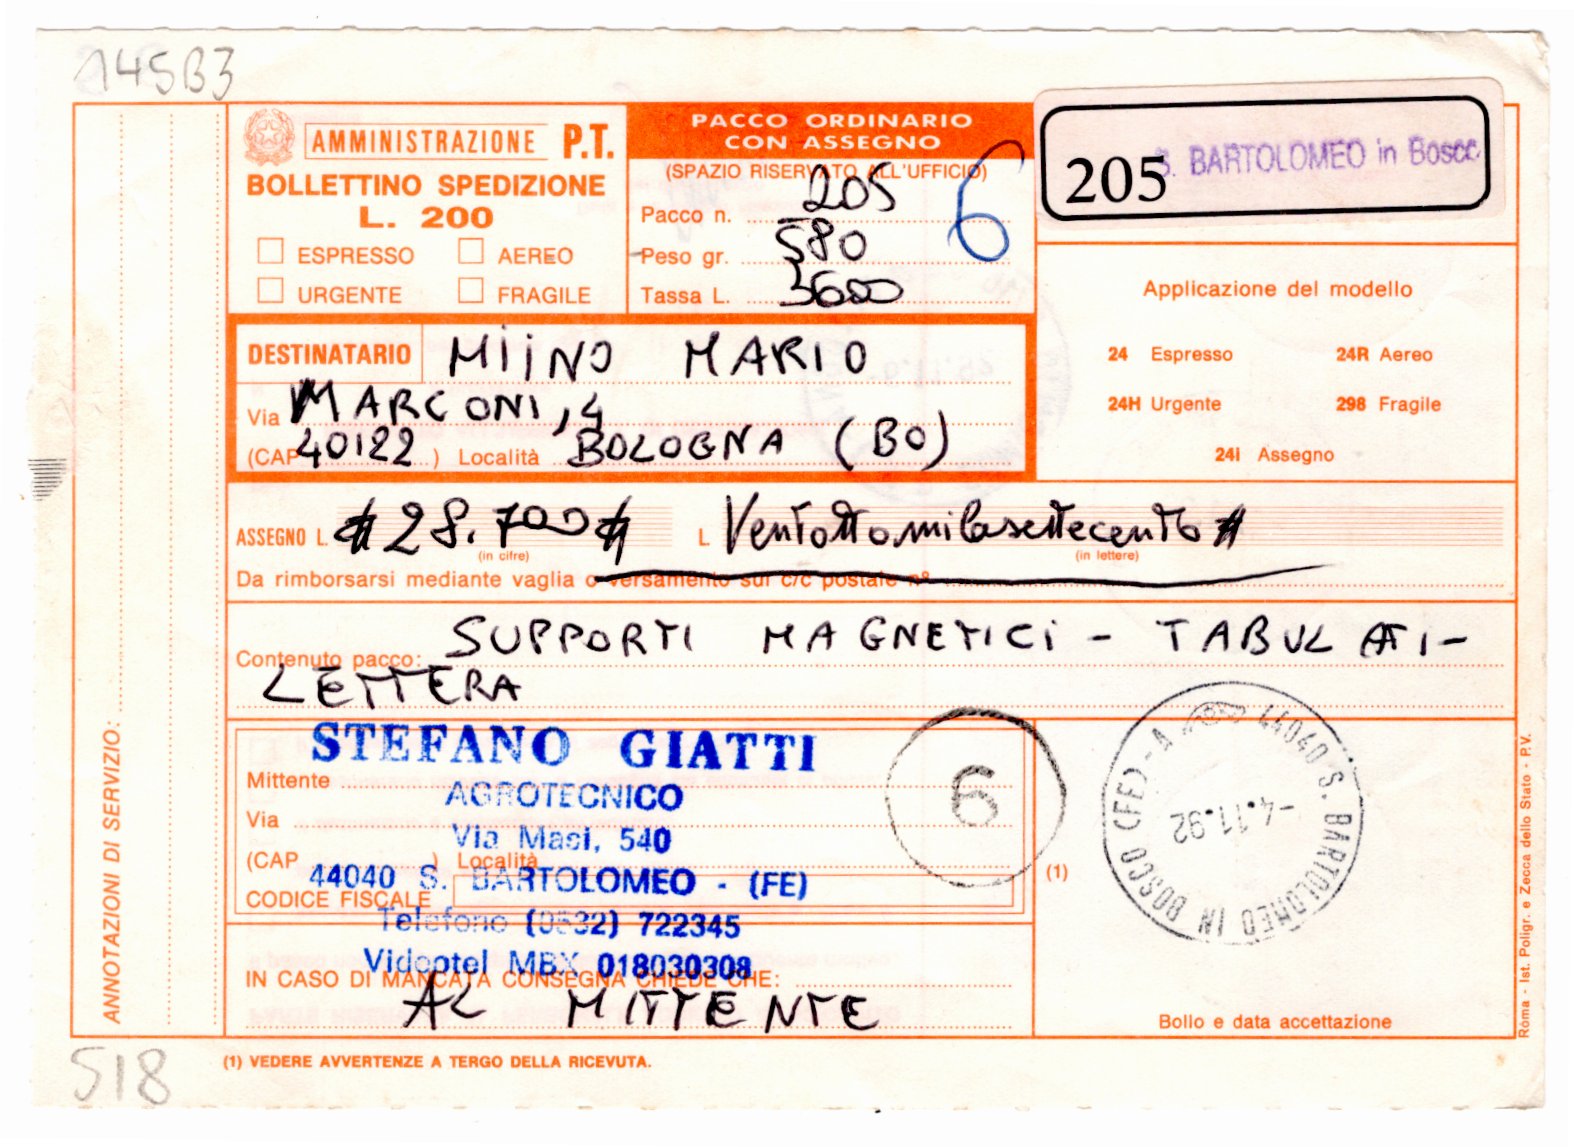 145B3
AMMINISTRAZIONE P.T.
BOLLETTINO SPEDIZIONE
L. 200
ESPRESSO AEREO
URGENTE FRAGILE
PACCO ORDINARIO
CON ASSEGNO
(SPAZIO RISERVATO ALL'UFFICIO)
6
Pacco n. 205
Peso gr. 580
Tassa L. 3600
205 S. BARTOLOMEO in Bosco
Applicazione del modello
24 Espresso 24R Aereo
24H Urgente 298 Fragile
24I Assegno
DESTINATARIO MIINO MARIO
Via MARCONI, 4
(CAP 40122) Località BOLOGNA (BO)
ASSEGNO L. # 28.700 # L. Ventottomilasettecento #
(in cifre) (in lettere)
Da rimborsarsi mediante vaglia o versamento sul c/c postale n°
Contenuto pacco: SUPPORTI MAGNETICI - TABULATI -
LETTERA
STEFANO GIATTI
Mittente
AGROTECNICO
Via
Via Masi, 540
(CAP ) Località
44040 S. BARTOLOMEO - (FE)
CODICE FISCALE
Telefono (0532) 722345
Videotel MBX 018030308
IN CASO DI MANCATA CONSEGNA CHIEDE CHE:
AL MITTENTE
6
(1)
44040 S. BARTOLOMEO IN BOSCO (FE) - A
-4.11.92
Bollo e data accettazione
ANNOTAZIONI DI SERVIZIO:
Roma - Ist. Poligr. e Zecca dello Stato - P.V.
(1) VEDERE AVVERTENZE A TERGO DELLA RICEVUTA.
518